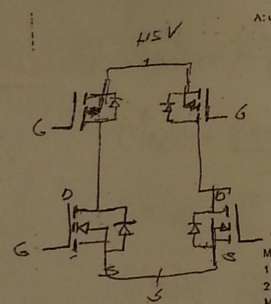 +15V
G
G
D
D
G
S
S
S
M
1
2